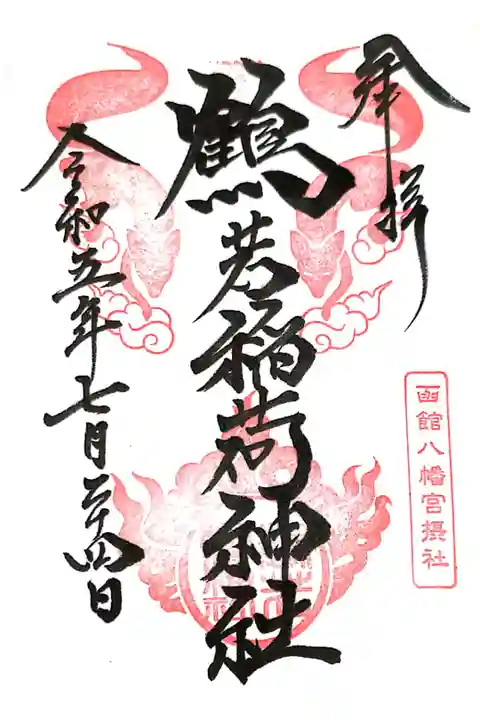 奉拝
函館八幡宮摂社
鶴若稲荷神社
令和五年七月二十四日